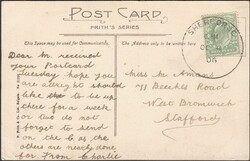 POST CARD
FRITH'S SERIES
This Space may be used for Communication.
The Address only to be written here.
SHENSTONE
06
Dear M received
your Postcard
Tuesday hope you
are alright should
like to to up
there for a week
or two do not
forget to send
on the C as the
others are nearly done
for From Charlie
Miss M
77 Beeches Road
West Bromwich
Stafford